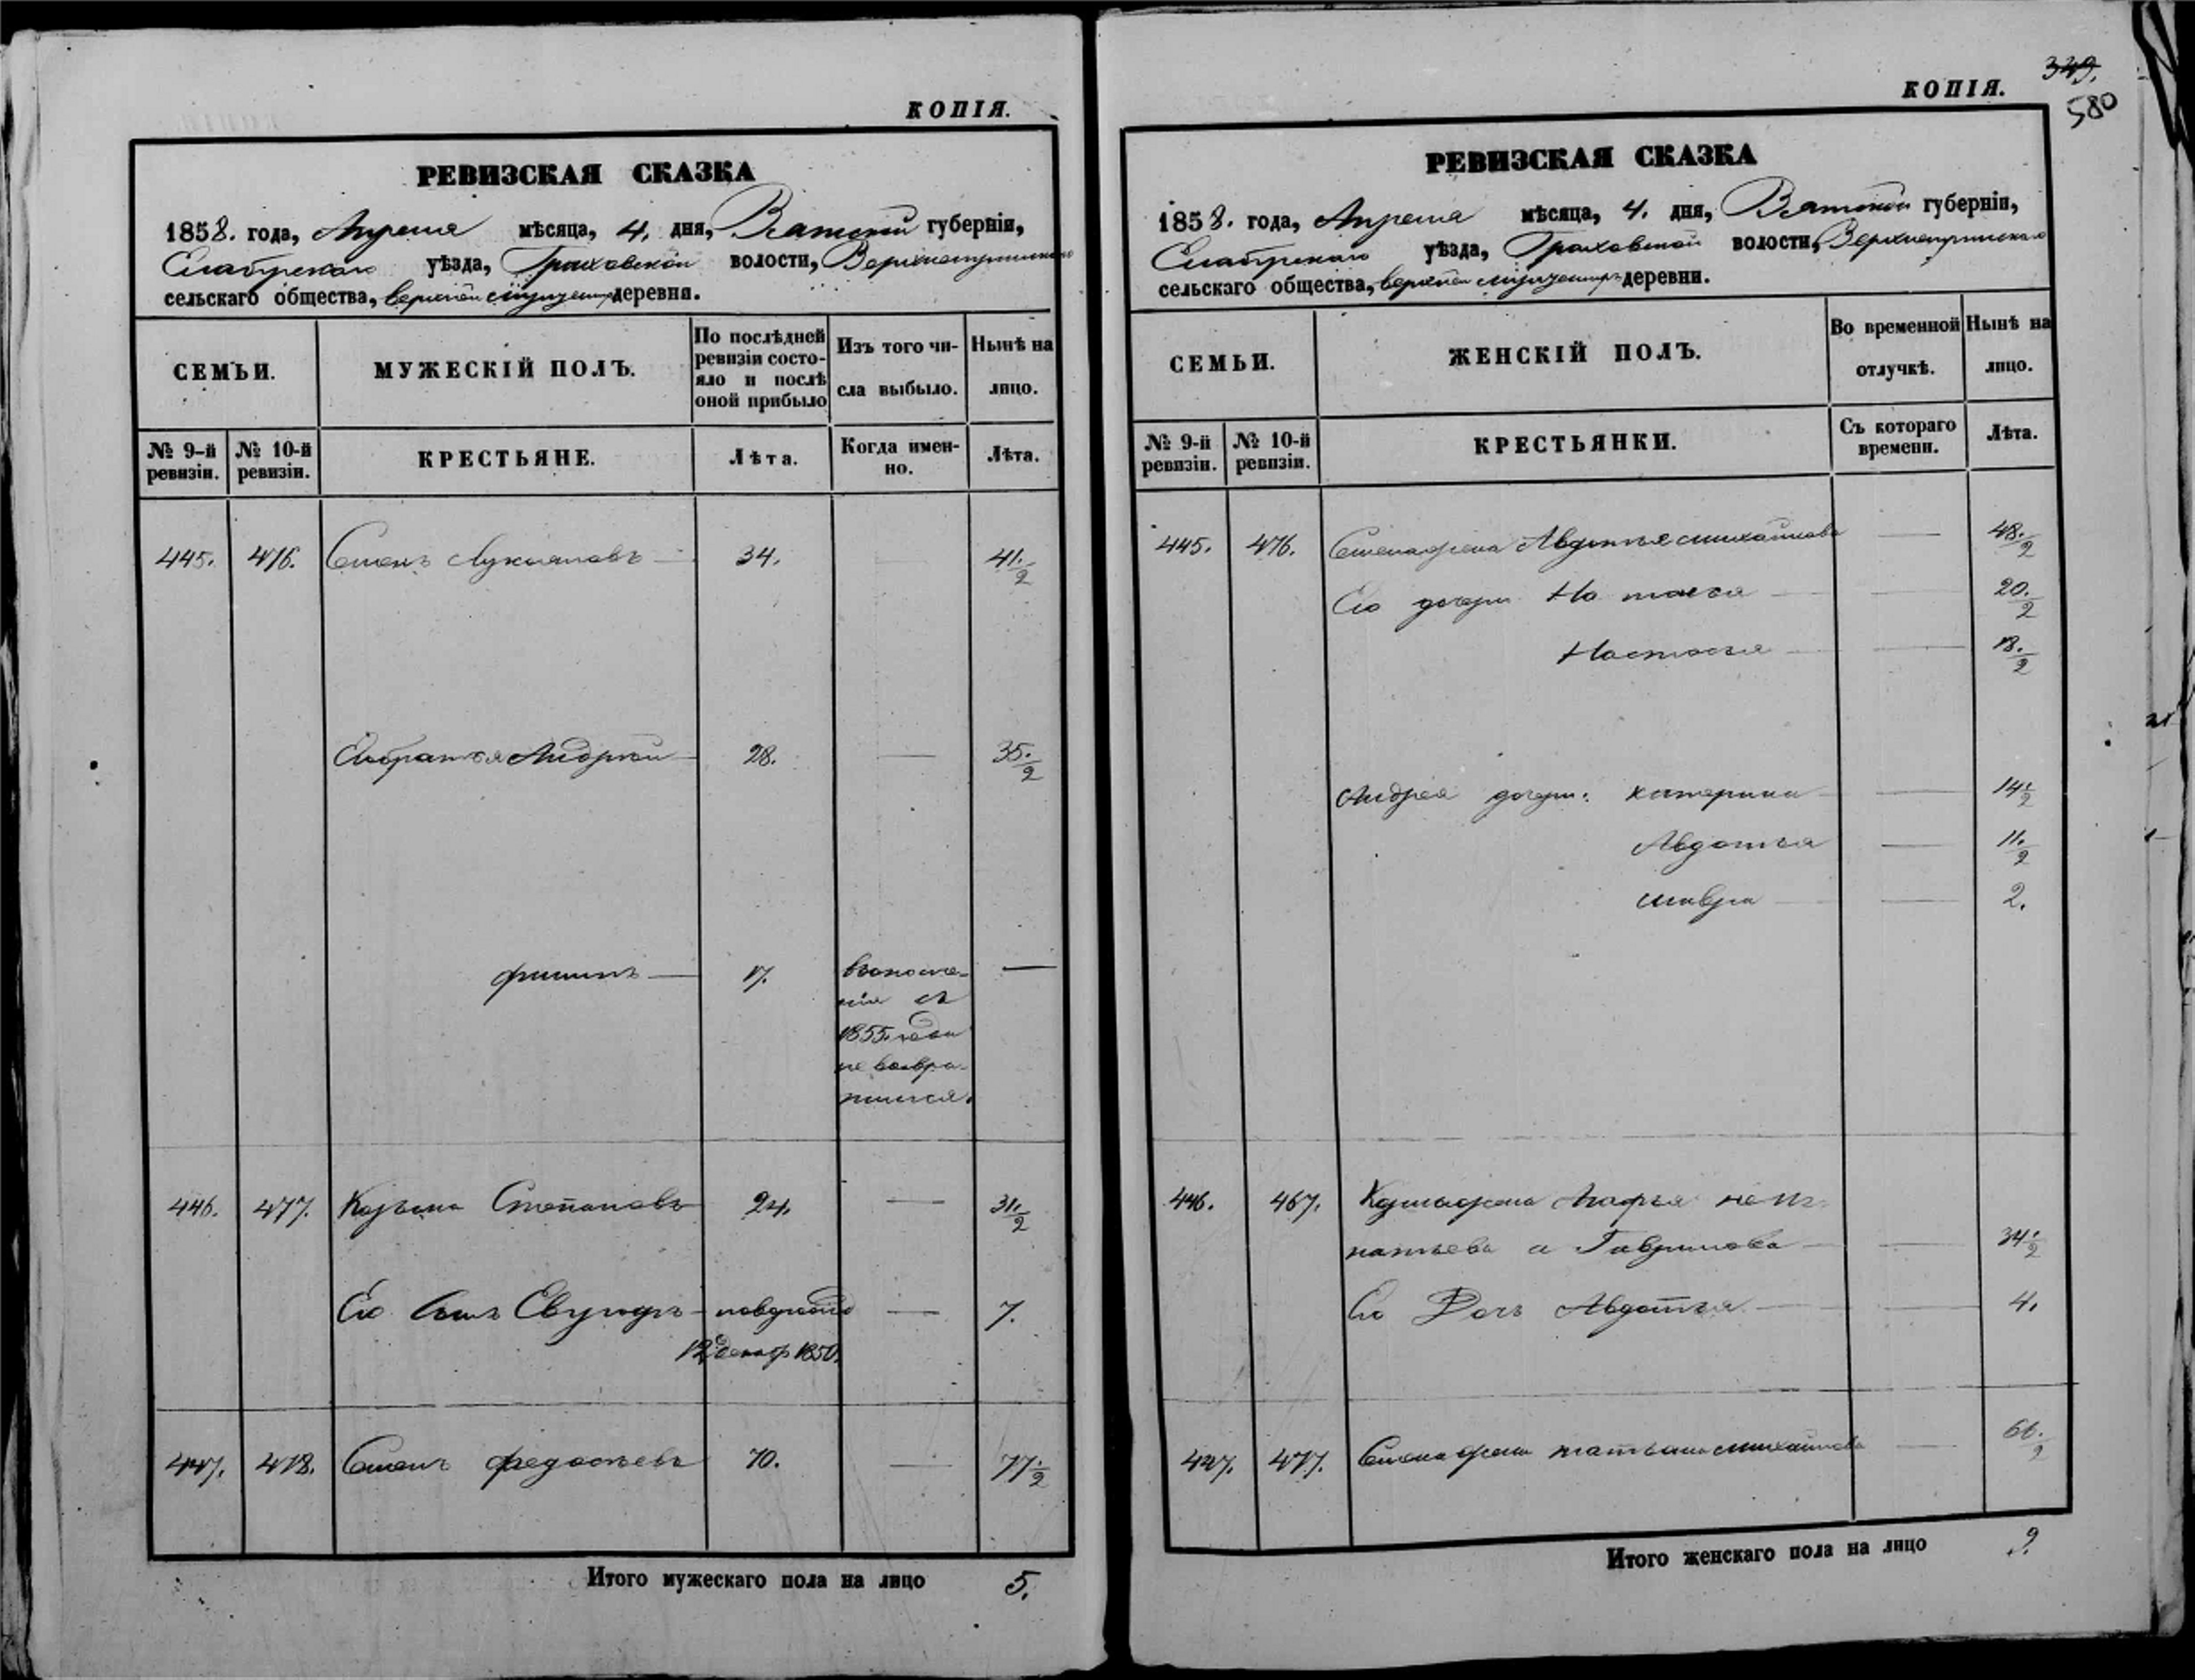 КОПІЯ.
РЕВИЗСКАЯ СКАЗКА
1858. года, Апреля мѣсяца, 4. дня, Вятской губерніи,
Елабугскаго уѣзда, Граховской волости,
сельскаго общества, верхней деревни.
СЕМЬИ.
МУЖЕСКІЙ ПОЛЪ.
По послѣдней ревизіи состояло и послѣ оной прибыло
Изъ того числа выбыло.
Нынѣ на лицо.
№ 9-й ревизіи.
№ 10-й ревизіи.
КРЕСТЬЯНЕ.
Лѣта.
Когда именно.
Лѣта.
445. 476. Семенъ Лукояновъ — 34. 41. 1/2
Его братья Андрей — 28. — 35. 1/2
Филипъ — 17. —
съ
1855. года
не возвра-
446. 477. Козьма Степановъ 24. — 31. 1/2
Его Сынъ — — 7.
12 декабр 1850.
447. 478. Семенъ Федосѣевъ 70. — 77. 1/2
Итого мужескаго пола на лицо 5.
349.
580
КОПІЯ.
РЕВИЗСКАЯ СКАЗКА
1858. года, Апреля мѣсяца, 4. дня, Вятской губерніи,
Елабугскаго уѣзда, Граховской волости,
сельскаго общества, верхней деревни.
СЕМЬИ.
ЖЕНСКІЙ ПОЛЪ.
Во временной отлучкѣ.
Нынѣ на лицо.
№ 9-й ревизіи.
№ 10-й ревизіи.
КРЕСТЬЯНКИ.
Съ котораго времени.
Лѣта.
445. 476. Семена жена Авдотья Михайлова — 48. 1/2
Его дочери Наталья — 20. 1/2
Настасья — 18. 1/2
Андрея дочери: Катерина — 14. 1/2
Авдотья — 11. 1/2
Мавра — 2.
446. 467. Козмы жена Агафья
а Гаврилова — 34. 1/2
Его Дочь Авдотья — 4.
447. 477. Семена жена Татьяна Михайлова — 66. 1/2
Итого женскаго пола на лицо 9.